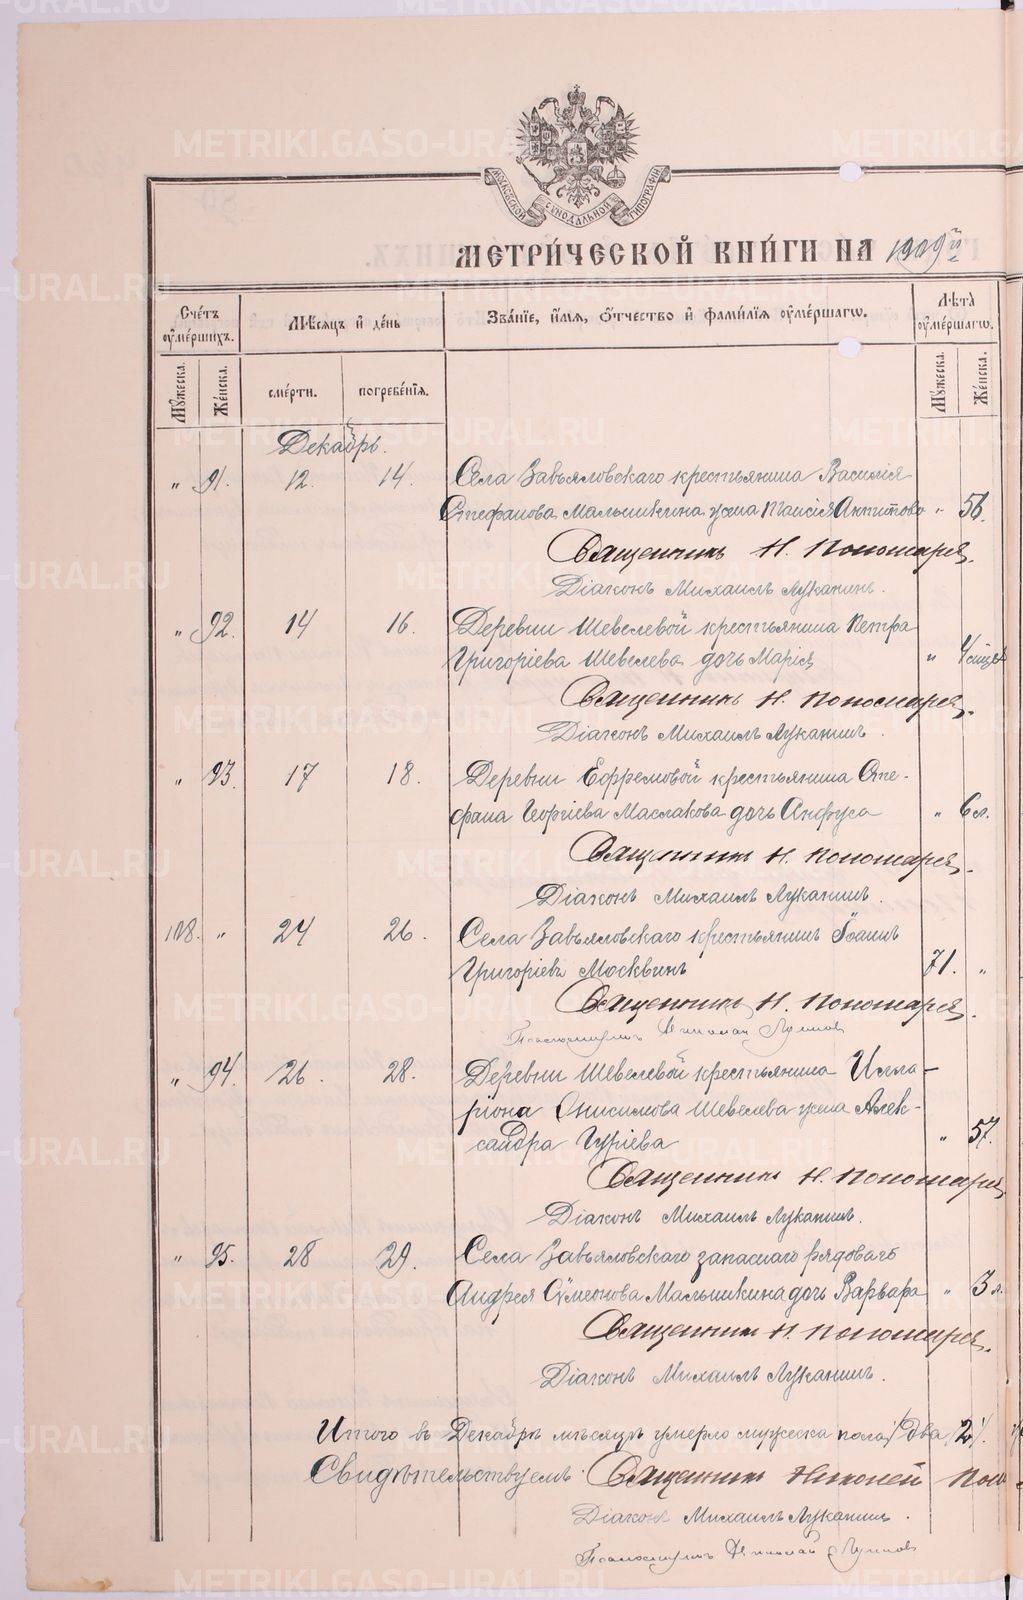 МОСКОВСКОЙ СУНОДАЛЬНОЙ ТИПОГРАФІИ
МЕТРИ́ЧЕСКОЙ КНИ́ГИ НА 1909й
Сче́тъ ѹ҆ме́ршихъ. Мѣ́сѧцъ и҆ де́нь Зва́нїе, и҆́мѧ, ѻ҆́тчество и҆ фами́лїѧ ѹ҆ме́ршагѡ. Лѣ́та ѹ҆ме́ршагѡ.
Мꙋ́жеска. Же́нска. сме́рти. погребе́нїѧ. Мꙋ́жеска. Же́нска.
Декабрь.
" 91. 12. 14. Села Завьяловскаго крестьянина Василія
Стефанова Мальшикина жена Таисія Антипова " 56.
Священникъ Н. Пономарев.
Діаконъ Михаилъ Луканинъ.
" 92. 14 16. Деревни Шевелевой крестьянина Петра
Григоріева Шевелева дочь Марія " 4
Священникъ Н. Пономарев.
Діаконъ Михаилъ Луканинъ.
" 93. 17 18. Деревни Ефремовой крестьянина Сте-
фана Георгіева Маслакова дочь Анфуса " 6 л.
Священникъ Н. Пономарев.
Діаконъ Михаилъ Луканинъ.
108. " 24 26. Села Завьяловскаго крестьянинъ Іоаннъ
Григоріевъ Москвинъ 71. "
Священникъ Н. Пономарев.
Псаломщикъ Николай
" 94. 26. 28. Деревни Шевелевой крестьянина Илла-
ріона Онисимова Шевелева жена Алек-
сандра Гуріева " 57.
Священникъ Н. Пономарев
Діаконъ Михаилъ Луканинъ.
" 95. 28 29. Села Завьяловскаго запаснаго рядоваго
Андрея Сѵмеонова Мальшикина дочь Варвара " 3 л.
Священникъ Н. Пономарев.
Діаконъ Михаилъ Луканинъ.
Итого въ Декабрѣ мѣсяцѣ умерло мужеска пола Два /2/.
Свидѣтельствуемъ: Священникъ Николай Поно
Діаконъ Михаилъ Луканинъ.
Псаломщикъ Николай
METRIKI.GASO-URAL.RU